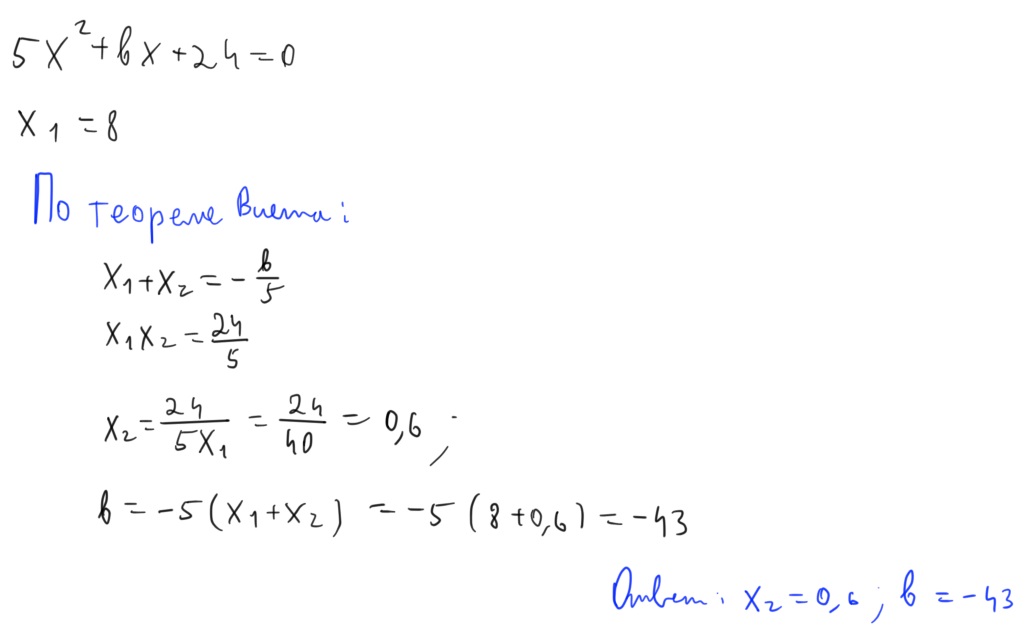 5x²+bx+24=0
x₁=8
По теореме Виета:
x₁+x₂=-b/5
x₁x₂=24/5
x₂=24/5x₁=24/40=0,6;
b=-5(x₁+x₂)=-5(8+0,6)=-43
Ответ: x₂=0,6; b=-43